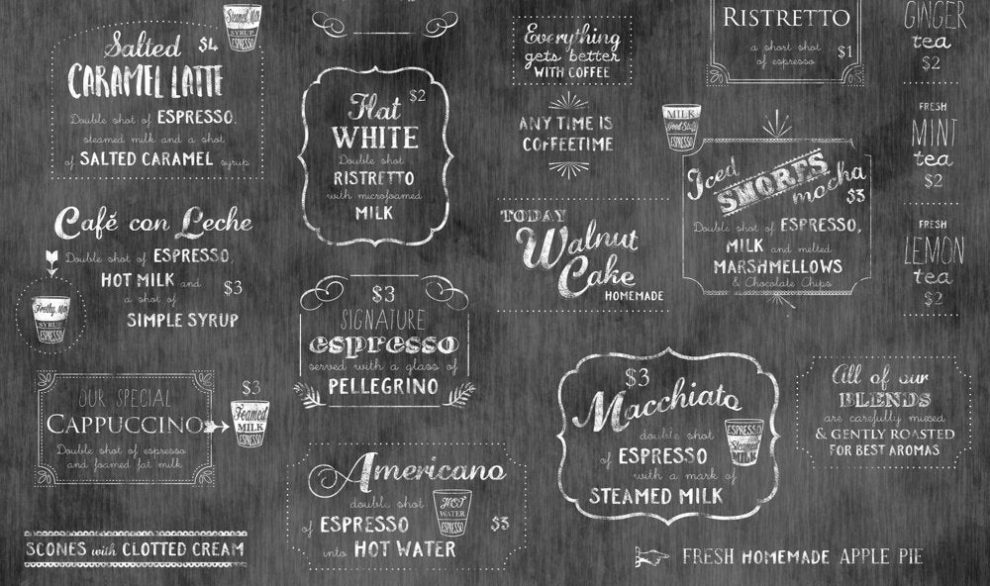 Salted $4
CARAMEL LATTE
Double shot of ESPRESSO,
steamed milk and a shot
of SALTED CARAMEL syrup
Steamed Milk
SYRUP
ESPRESSO
Café con Leche
Double shot of ESPRESSO,
HOT MILK and
a shot of
SIMPLE SYRUP
$3
SYRUP
ESPRESSO
OUR SPECIAL
CAPPUCCINO
Double shot of espresso
and foamed fat milk
$3
Foamed
MILK
ESPRESSO
SCONES with CLOTTED CREAM
Flat $2
WHITE
Double shot
RISTRETTO
with microfoamed
MILK
$3
SIGNATURE
espresso
served with a glass of
PELLEGRINO
Americano
double shot
of ESPRESSO
into HOT WATER
HOT
WATER
ESPRESSO
$3
Everything
gets better
WITH COFFEE
ANY TIME IS
COFFEETIME
TODAY
Walnut
Cake
HOMEMADE
$3
Macchiato
double shot
of ESPRESSO
with a mark of
STEAMED MILK
ESPRESSO
Steamed
MILK
FRESH HOMEMADE APPLE PIE
RISTRETTO
a short shot
of espresso
$1
MILK
Good Stuff
ESPRESSO
Iced
SMORES
mocha
$3
Double shot of ESPRESSO,
MILK and melted
MARSHMELLOWS
& Chocolate Chips
All of our
BLENDS
are carefully mixed
& GENTLY ROASTED
FOR BEST AROMAS
GINGER
tea
$2
FRESH
MINT
tea
$2
FRESH
LEMON
tea
$2